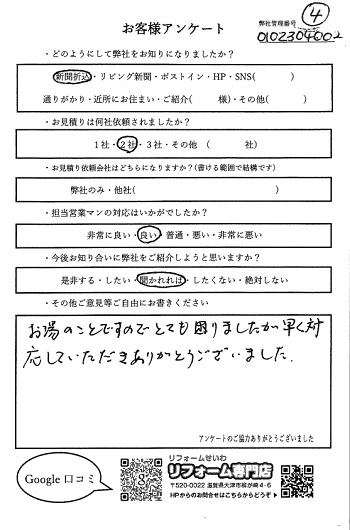 お客様アンケート
弊社管理番号
④
0102304002
・どのようにして弊社をお知りになりましたか？
新聞折込・リビング新聞・ポストイン・HP・SNS(　　　)
通りがかり・近所にお住まい・ご紹介(　　　様)・その他(　　　)
・お見積りは何社依頼されましたか？
1社・2社・3社・その他（　　　社）
・お見積り依頼会社はどちらになりますか？(書ける範囲で結構です)
弊社のみ・他社(　　　)
・担当営業マンの対応はいかがでしたか？
非常に良い・良い・普通・悪い・非常に悪い
・今後お知り合いに弊社をご紹介しようと思いますか？
是非する・したい・聞かれれば・したくない・絶対しない
・その他ご意見等ご自由にお書きください
お湯のことですのでとても困りましたが早く対
応していただきありがとうございました.
アンケートのご協力ありがとうございました
Google 口コミ
リフォームせいわ
リフォーム専門店
〒520-0022 滋賀県大津市柳が崎4-6
HPからのお問合せはこちらからどうぞ